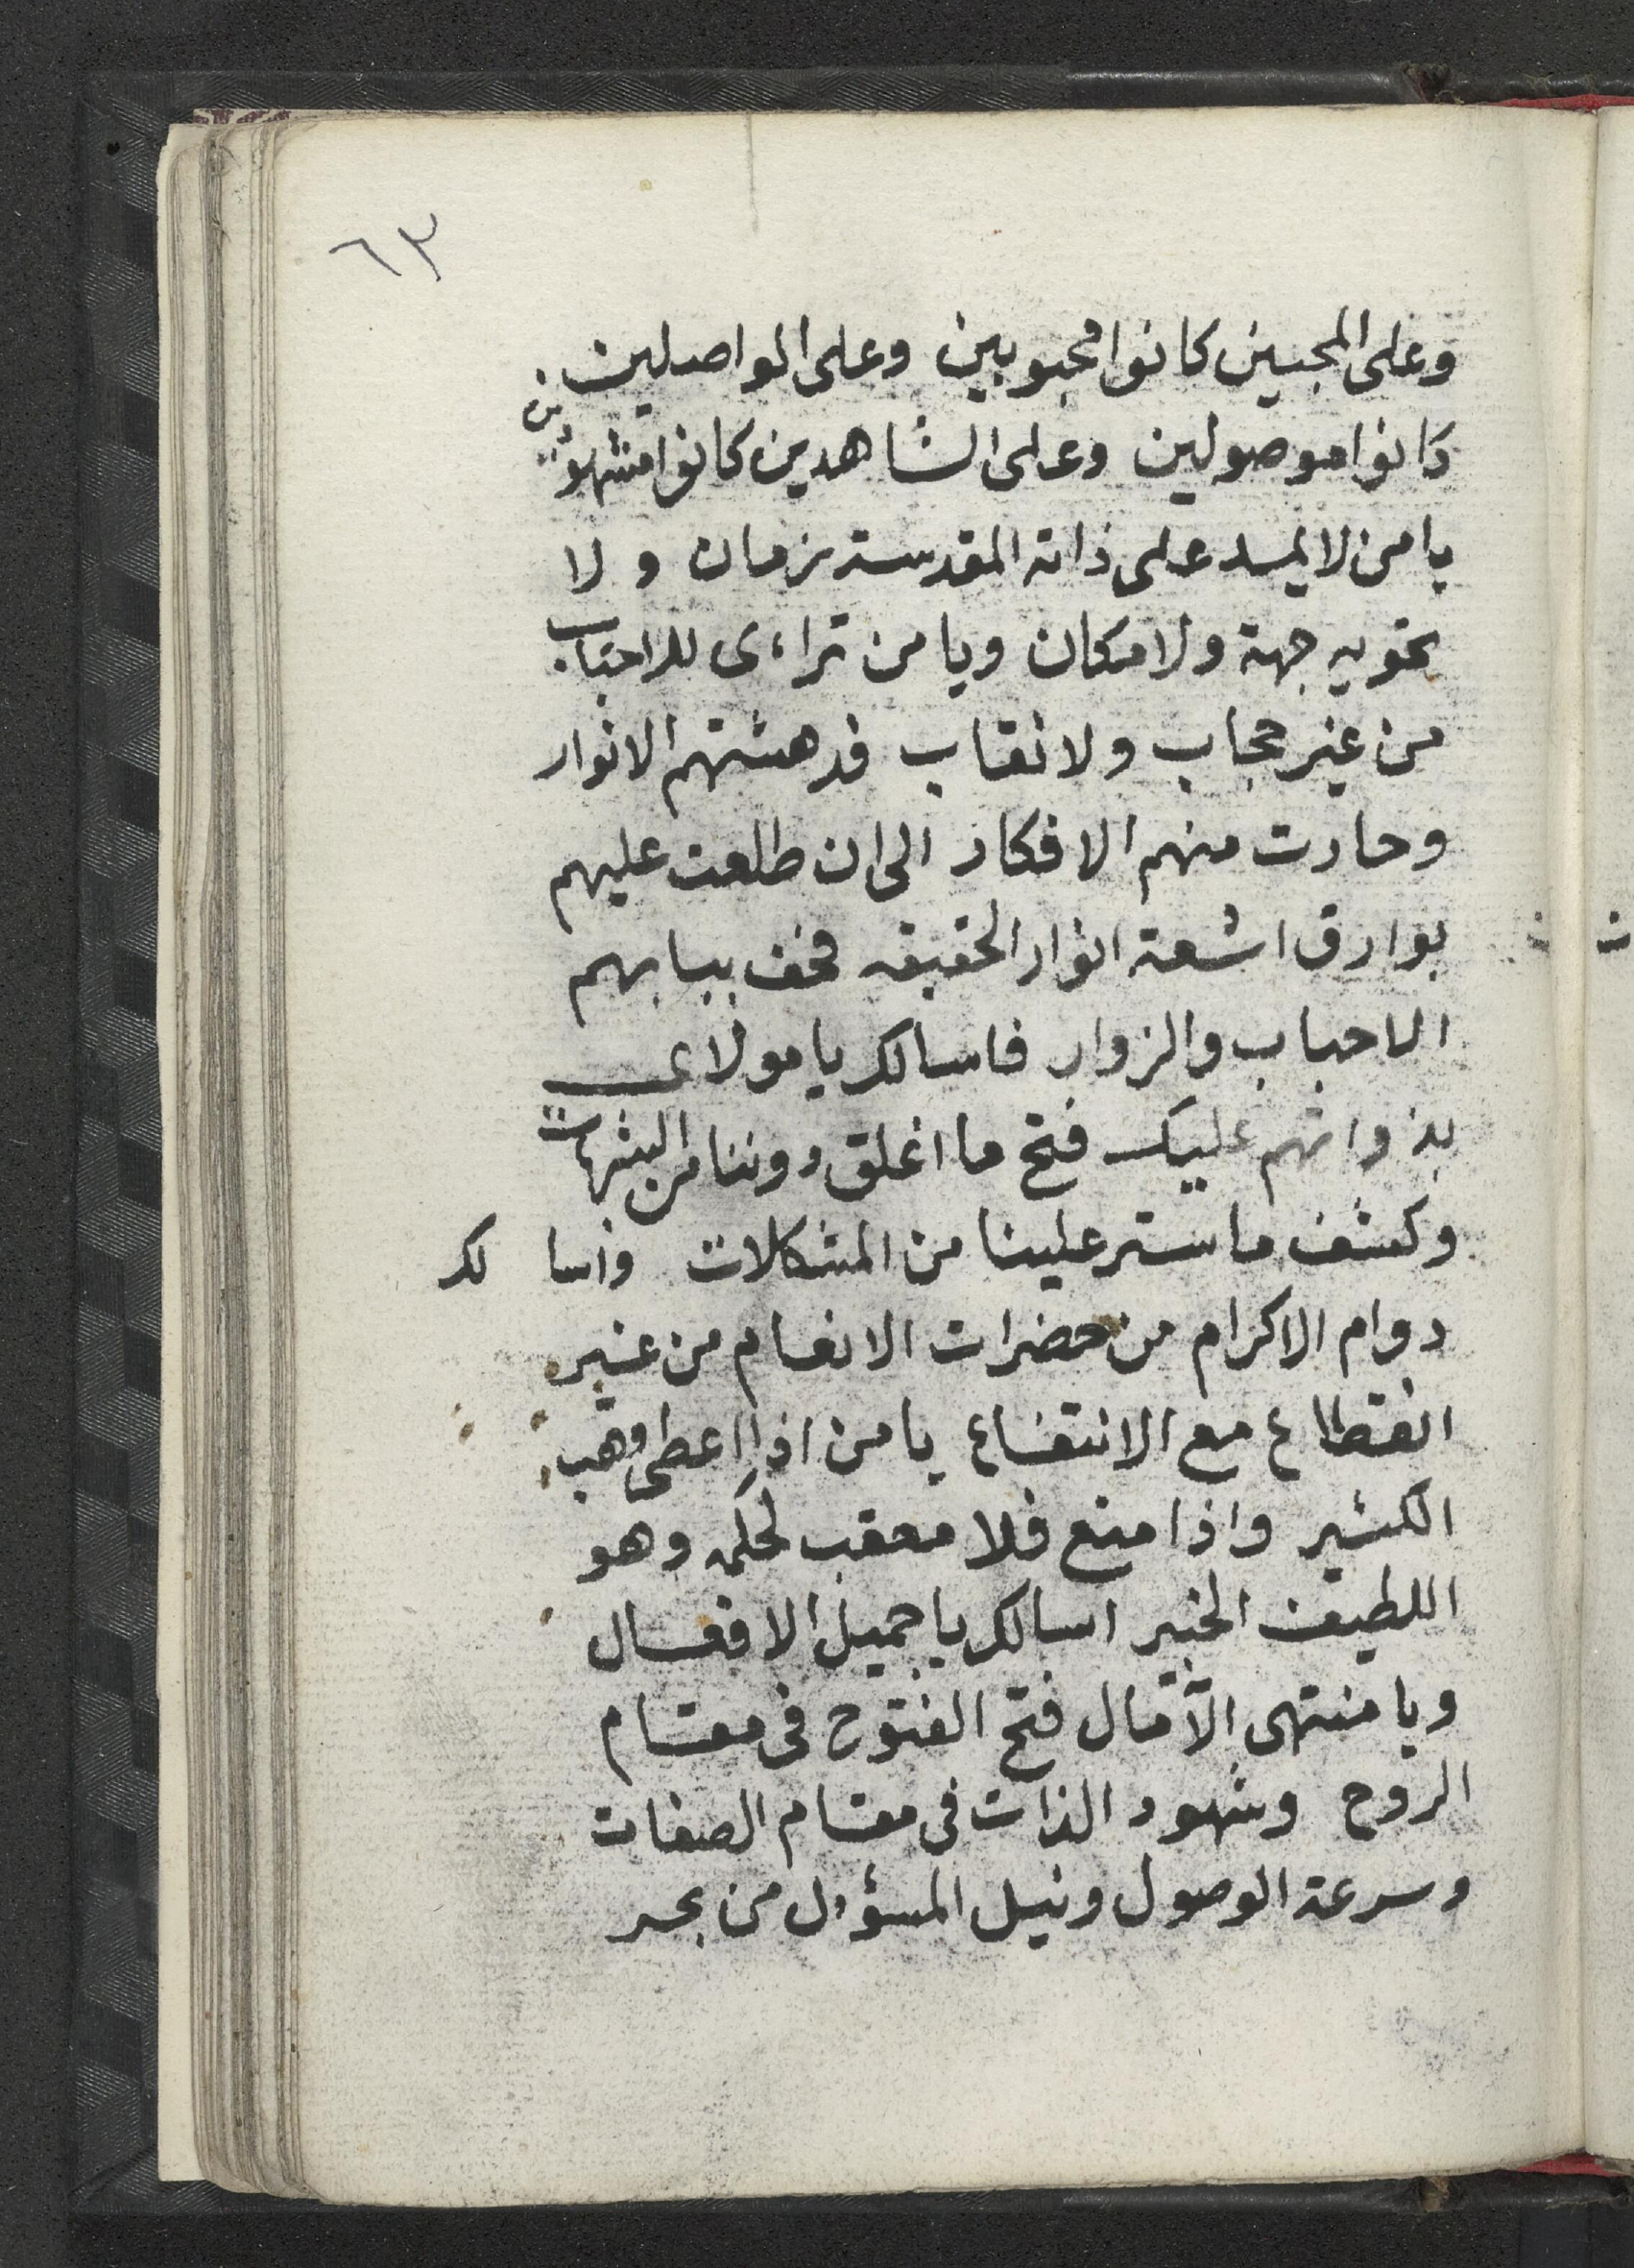 ٦٣
وعلى المحبين كانوا محبوبين وعلى الواصلين
كانوا موصولين وعلى الشاهدين كانوا مشهودين
يا من لا يمسد على ذاته المقدسة زمان ولا
تحويه جهة ولا مكان ويا من تراءى للاحباب
من غير حجاب ولا نقاب فدهشتهم الانوار
وحارت منهم الافكار الى ان طلعت عليهم
بوارق اشعة انوار الحقيقه فحف ببابهم
الاحباب والزوار فاسالك يا مولاى
بذواتهم عليك فتح ما اغلق دوننا من الشبهات
وكشف ما ستر علينا من المشكلات واسا لك
دوام الاكرام من حضرات الانعام من غير
انقطاع مع الانتفاع يا من اذا اعطى وهب
الكثير واذا منع فلا معقب لحكمه وهو
اللطيف الخبير اسالك يا جميل الافعال
ويا منتهى الآمال فتح الفتوح فى مقام
الروح وشهود الذات فى مقام الصفات
وسرعة الوصول ونيل المسؤل من بحر